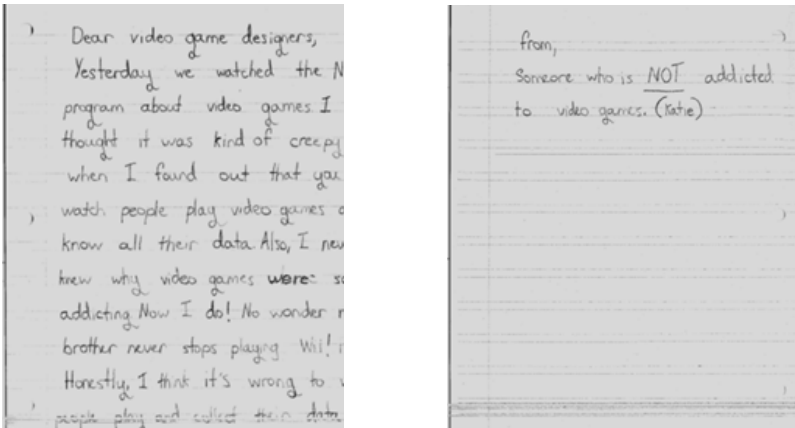 Dear video game designers,
Yesterday we watched the N
program about video games I
thought it was kind of creepy
when I found out that you
watch people play video games
know all their data. Also, I nev
knew why video games were so
addicting Now I do! No wonder
brother never stops playing Wii!
Honestly, I think it's wrong to
people play and collect their data
from,
Someone who is NOT addicted
to video games. (Katie)